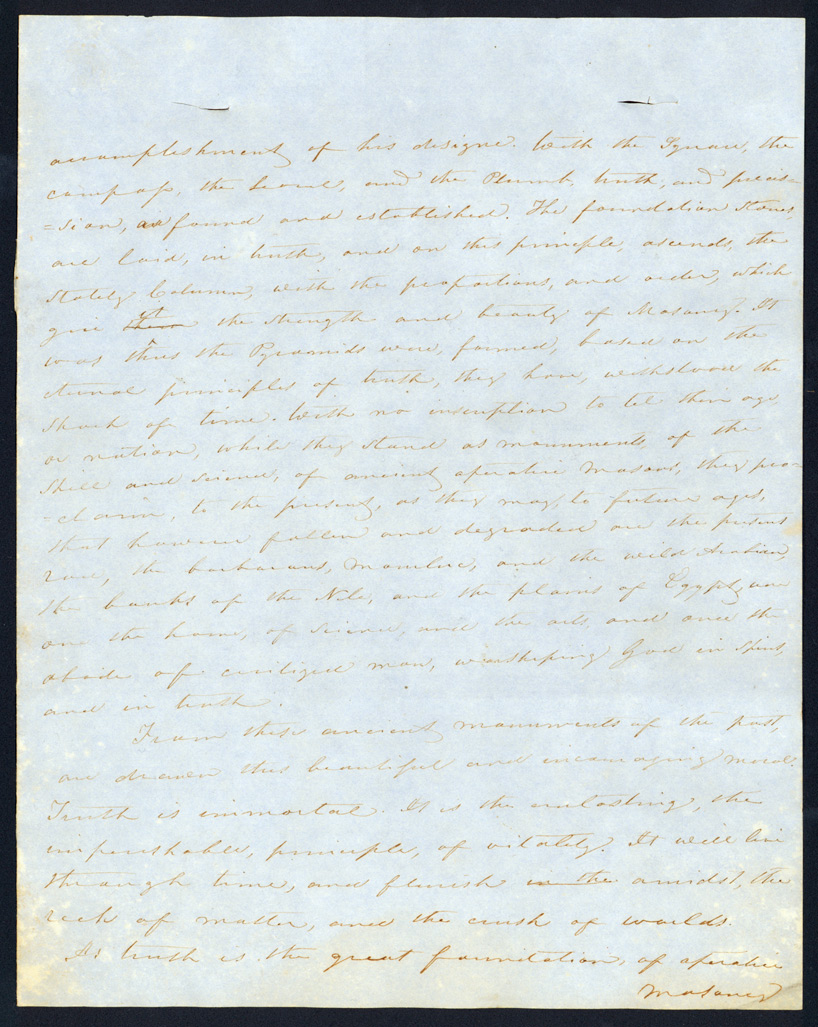 accomplishment of his designe. With the Square, the
compass, the Leavel, and the Plumb, truth, and precis=
=sion, are found and established. The foundation stones,
are laid, in truth, and on this principle, ascends, the
stately Column, with the proportions, and order, which
give it the strength and beauty of Masonry. It
was thus the Pyramids were, formed, based on the
eternal principles of truth, they have, withstood the
shock of time. With no inscription to tel their age,
or nation, while they stand as monuments of the
skill and science, of ancient operative Masons, they pro=
=claim, to the present, as they may, to future ages,
that however fallen and degraded are the present
race, the barbarous, Mamluc, and the wild Arabian,
the banks of the Nile, and the plains of Egypt,
one the home, of science, and the arts and once the
abode of civilized man, worshiping God in spirit,
and in truth.
From these ancient monuments of the past,
are drawn this beautiful and incouraging moral.
Truth is immortal. It is the everlasting, the
imperishable, principle, of vitality. It will live
through time, and flurish in the amidst, the
reck of matter, and the crush of worlds.
As truth is the great foundation, of operative
Masonry